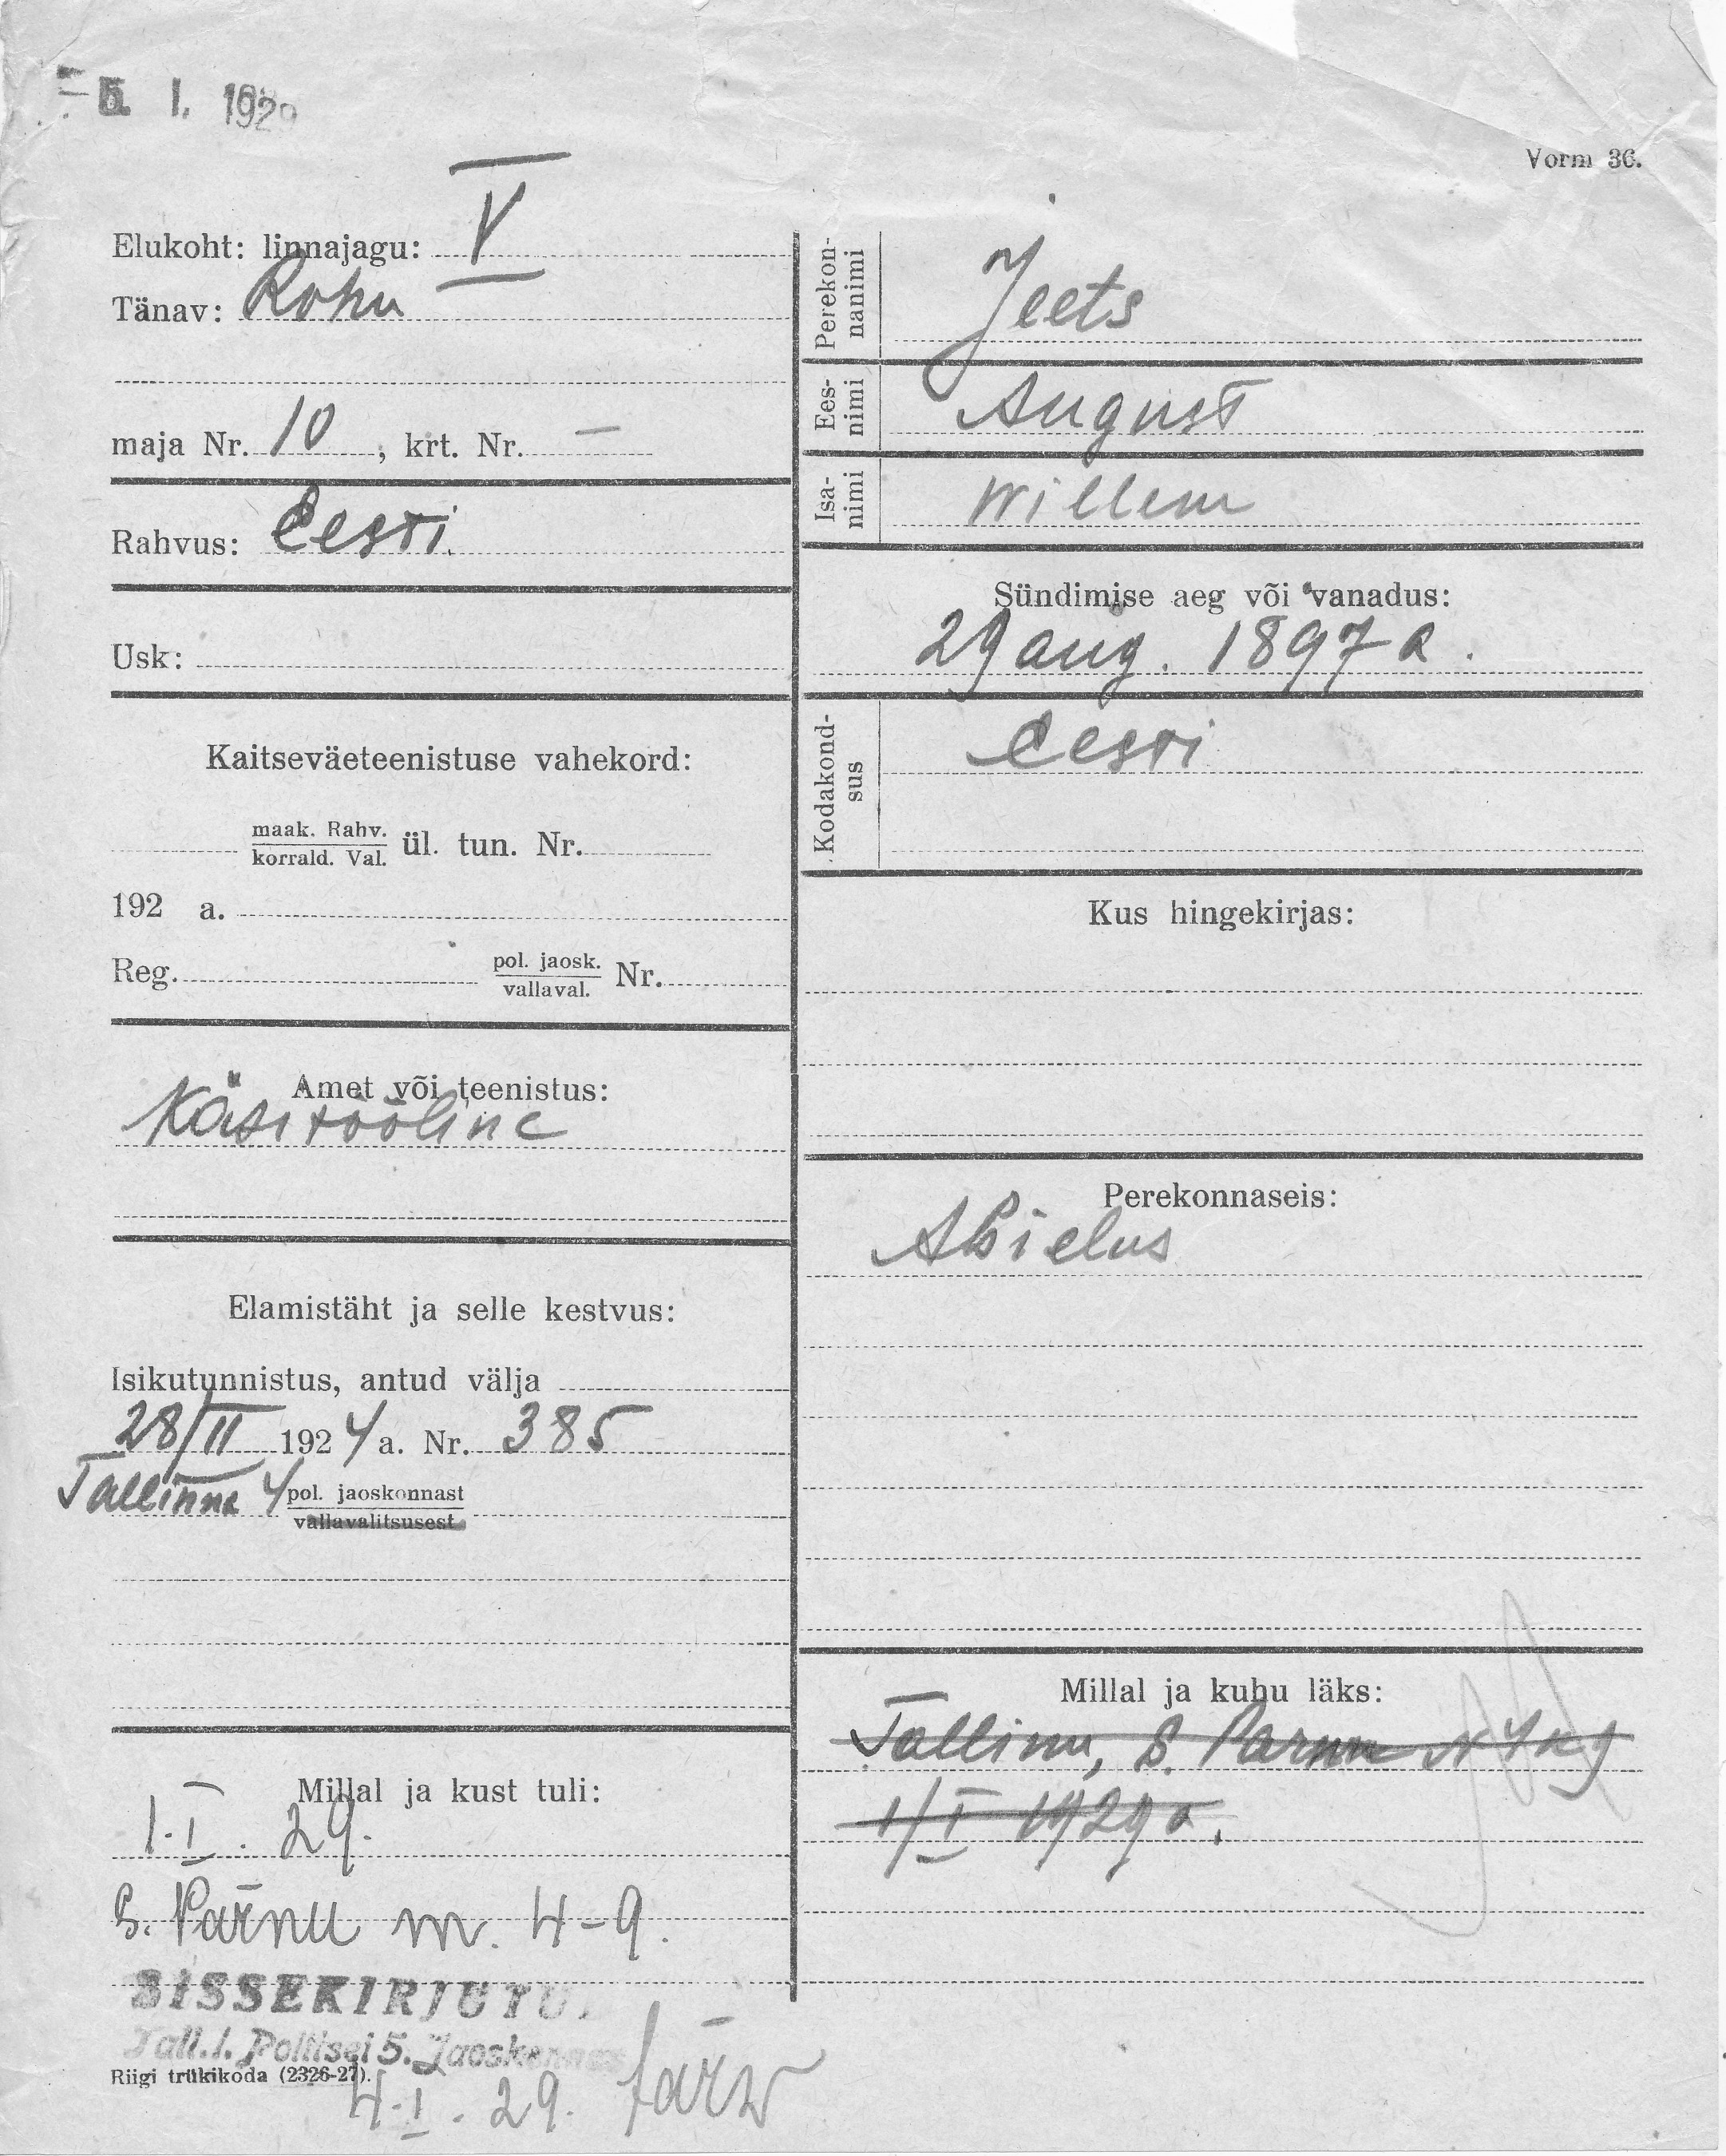 5. I. 1929
Vorm 36.
Elukoht: linnajagu: V
Tänav: Rohu
maja Nr. 10, krt. Nr. —
Rahvus: Eesti
Usk:
Kaitseväeteenistuse vahekord:
maak. Rahv.
korrald. Val. ül. tun. Nr.
192 a.
Reg. pol. jaosk.
vallaval. Nr.
Amet või teenistus:
Käsitööline
Elamistäht ja selle kestvus:
Isikutunnistus, antud välja
28/II 1924 a. Nr. 385
Tallinna 4 pol. jaoskonnast
vallavalitsusest
Millal ja kust tuli:
1.I. 29.
S. Pärnu m. 4-9.
SISSEKIRJUTU
Tall.l. Politsei 5. Jaoskonnas
Riigi trükikoda (2326-27).
4.I. 29. Järw
Perekon-
nanimi
Jeets
Ees-
nimi
August
Isa-
nimi
Willem
Sündimise aeg või vanadus:
29 aug. 1897 a.
Kodakond-
sus
Eesti
Kus hingekirjas:
Perekonnaseis:
Abielus
Millal ja kuhu läks:
Tallinn, S. Parnu 4
1/I 1929 a.